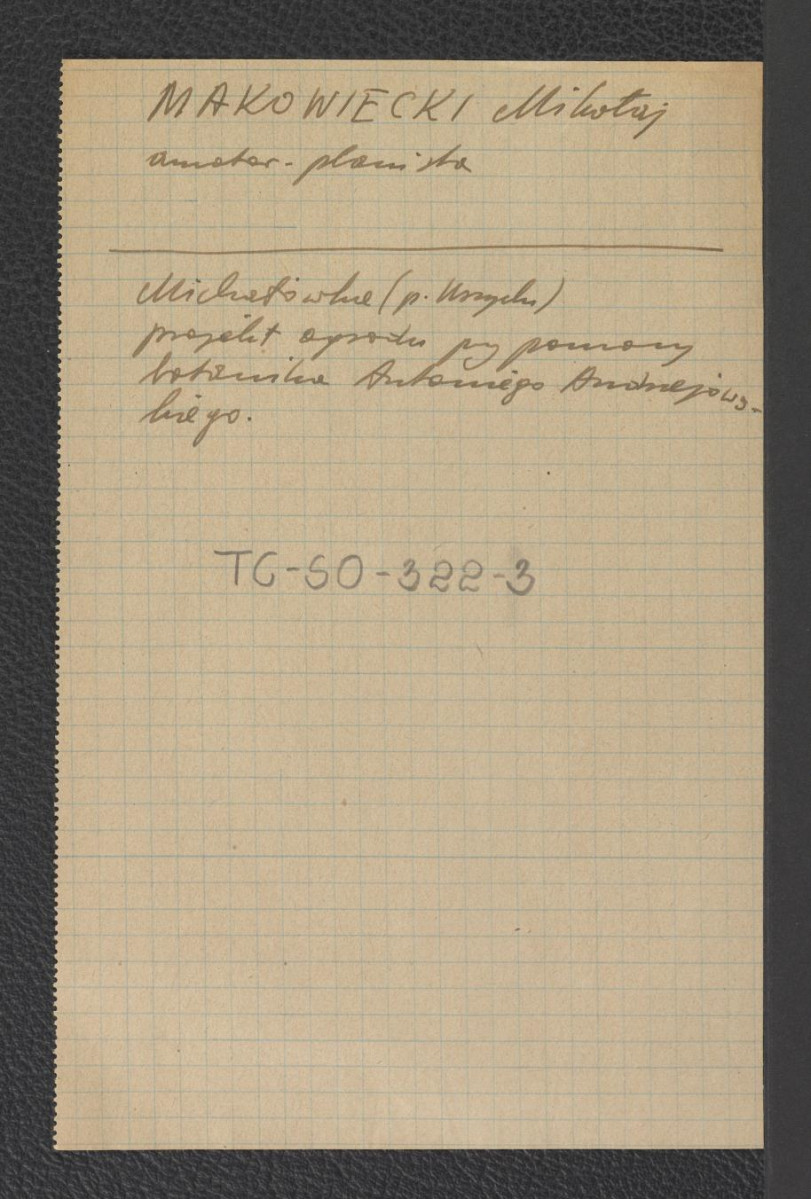 MAKOWIECKI Mikołaj
amator - planista
Michałówka (p. Uszycki)
projekt ogrodu przy pomocy
botanika Antoniego Andrzejows-
kiego.
TG-SO-322-3